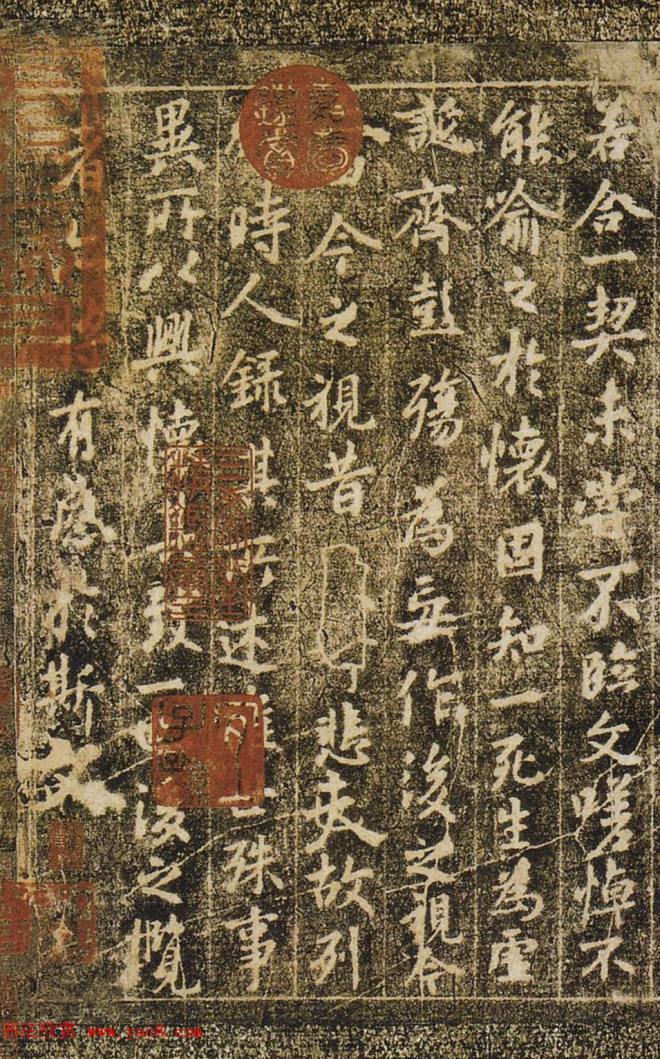 若合一契未嘗不臨文嗟悼不
能喻之於懷固知一死生為虛
誕齊彭殤為妄作後之視今
今之視昔悲夫故列
時人錄其所述世殊事
異所以興懷一致一也後之
者有感於斯文
www.yac8.com